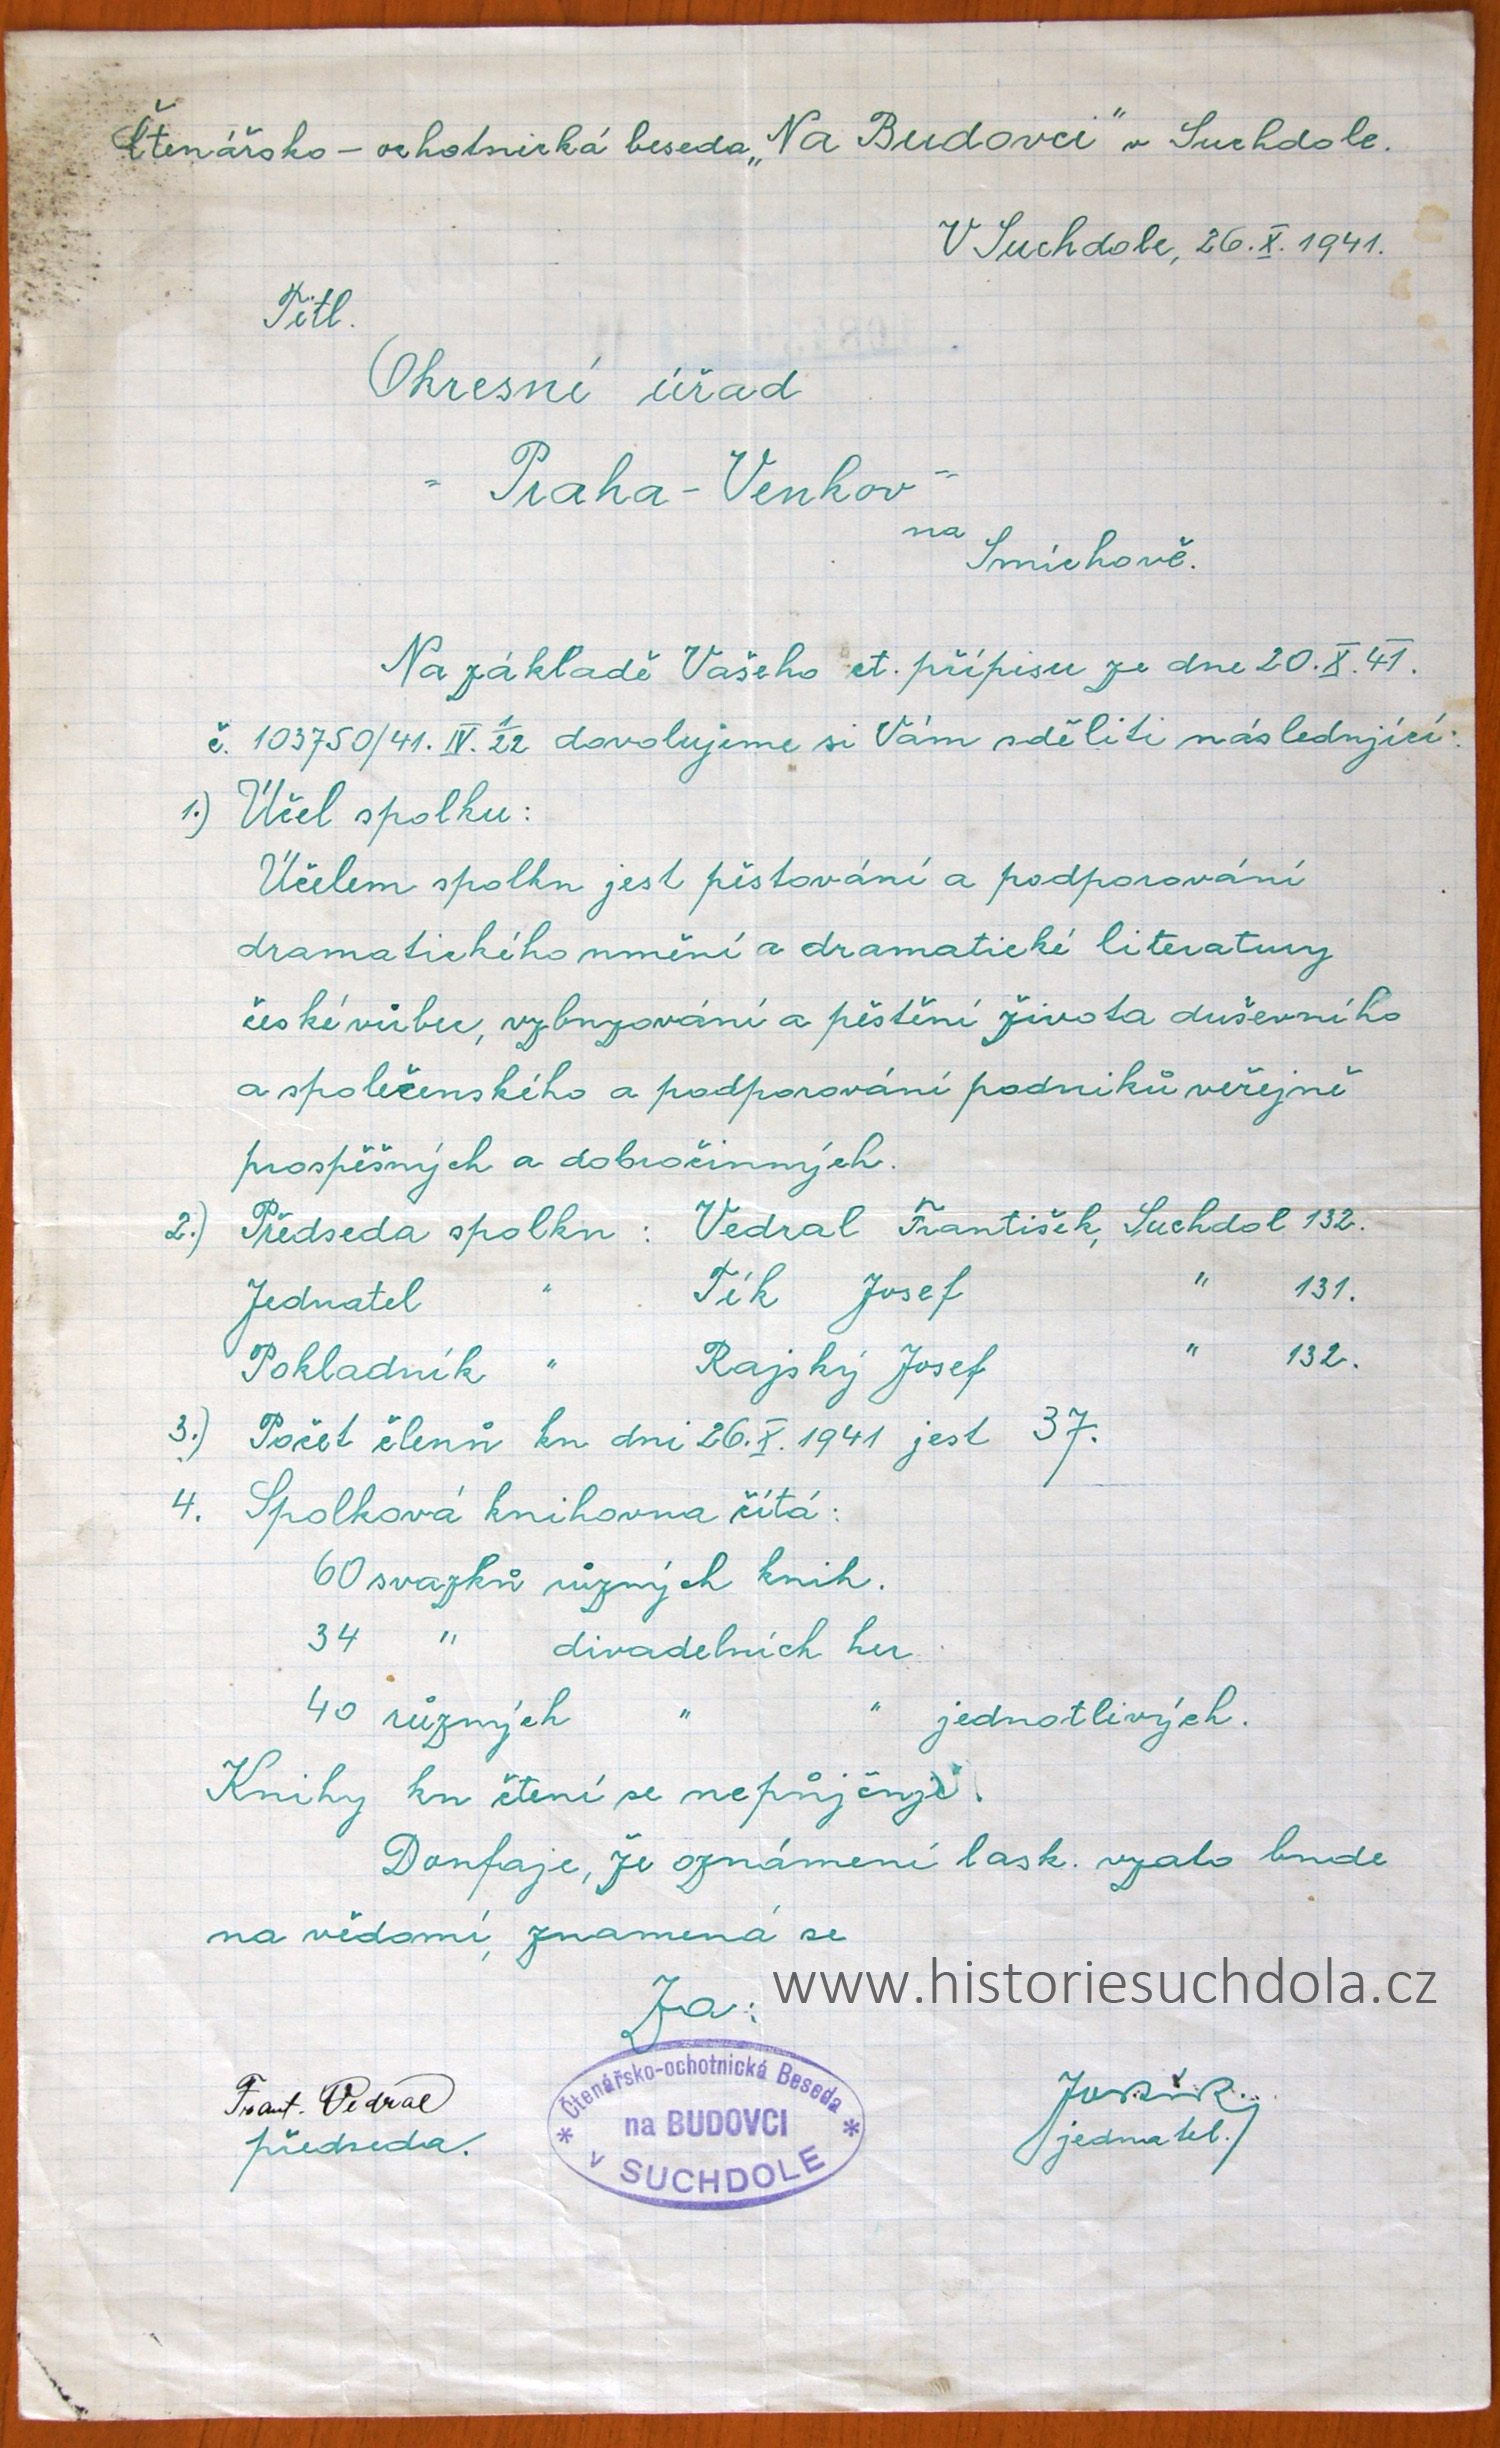 Čtenářsko - ochotnická beseda „Na Budovci" v Suchdole.
V Suchdole, 26. X. 1941.
Titl.
Okresní úřad
" Praha - Venkov "
na
Smíchově.
Na základě Vašeho ct. přípisu ze dne 20. X. 41.
č. 103750/41. IV. 1/22 dovolujeme si Vám sděliti následující:
1.) Účel spolku:
Účelem spolku jest pěstování a podporování
dramatického umění a dramatické literatury
české vůbec, vzbuzování a pěstění života duševního
a společenského a podporování podniků veřejně
prospěšných a dobročinných.
2.) Předseda spolku : Vedral František, Suchdol 132.
Jednatel " Tík Josef " 131.
Pokladník " Rajský Josef " 132.
3.) Počet členů ku dni 26. X. 1941 jest 37.
4. Spolková knihovna čítá:
60 svazků různých knih.
34 " divadelních her
40 různých " " jednotlivých.
Knihy ku čtení se nepůjčuje.
Doufaje, že oznámení lask. vzato bude
na vědomí, znamená se
Za:
www.historiesuchdola.cz
Frant. Vedral
předseda.
Čtenářsko-ochotnická Beseda
* na BUDOVCI *
v SUCHDOLE
jednatel.